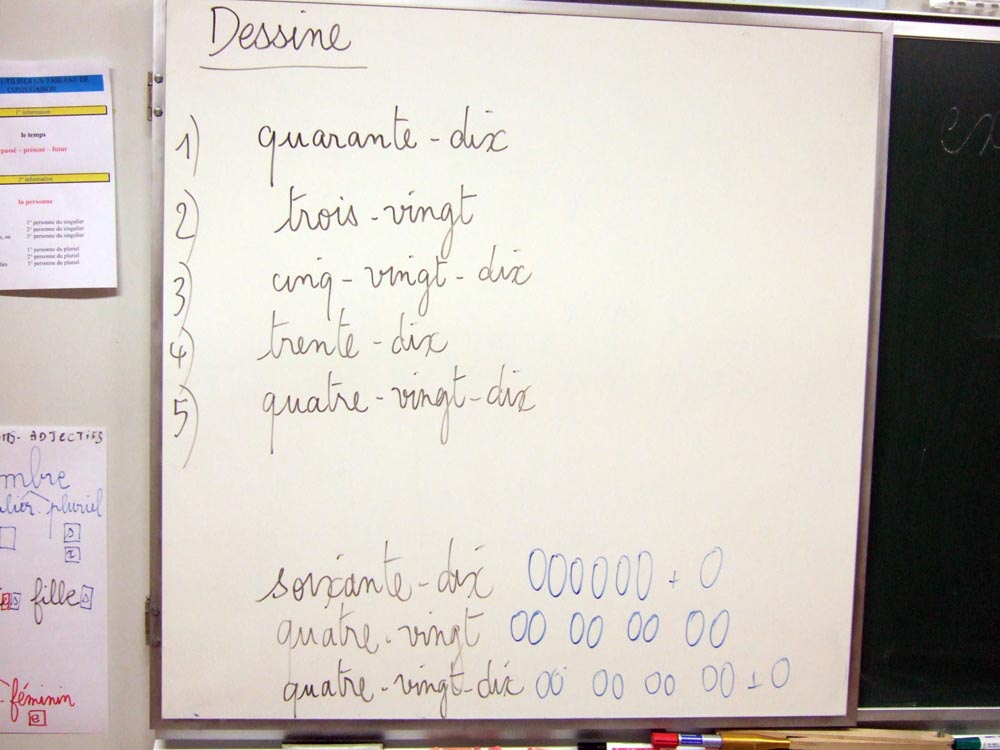 Dessine
1) quarante-dix
2) trois-vingt
3) cinq-vingt-dix
4) trente-dix
5) quatre-vingt-dix
soixante-dix 000000 + 0
quatre-vingt 00 00 00 00
quatre-vingt-dix 00 00 00 00 + 0
UTILISER UN TABLEAU DE
CONJUGAISON
1° information
le temps
passé – présent – futur
2° information
la personne
1° personne du singulier
2° personne du singulier
on 3° personne du singulier
1° personne du pluriel
2° personne du pluriel
3° personne du pluriel
ADJECTIFS
mbre
pluriel
s
x
es filles
féminin
e
ex